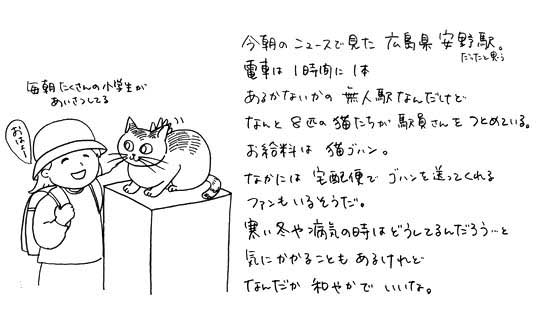 毎朝たくさんの小学生が
あいさつしてる
おはよー
今朝のニュースで見た 広島県 安野駅。
だったと思う
電車は 1時間に 1本
あるかないかの 無人駅なんだけど
なんと 8匹の 猫たちが 駅員さんを つとめている。
お給料は 猫ゴハン。
なかには 宅配便で ゴハンを送ってくれる
ファンもいるそうだ。
寒い冬や 病気の時は どうしてるんだろう…と
気にかかることも あるけれど
なんだか 和やかで いいな。